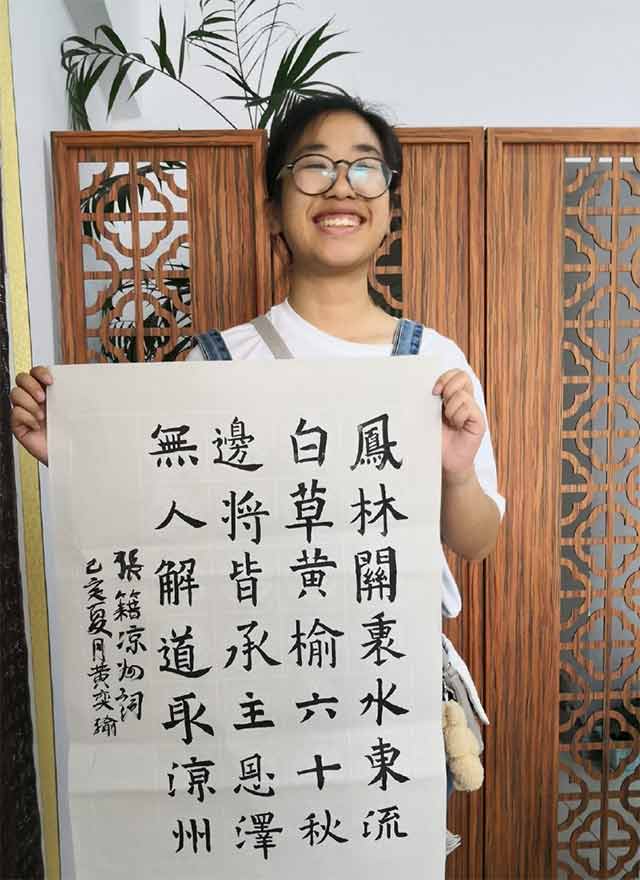 鳳林關裏水東流
白草黄榆六十秋
邊將皆承主恩澤
無人解道取涼州
張籍凉州詞
己亥夏月黄奕瑜